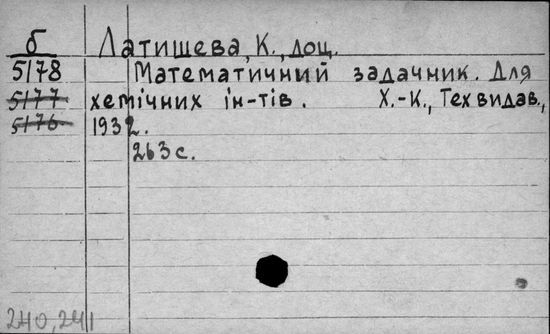 б Латишева, К., доц.
5178 Математичний задачник. Для
5177 хемічних ін-тів. Х.-К., Техвидав.,
5176 1932.
263 с.
240, 241